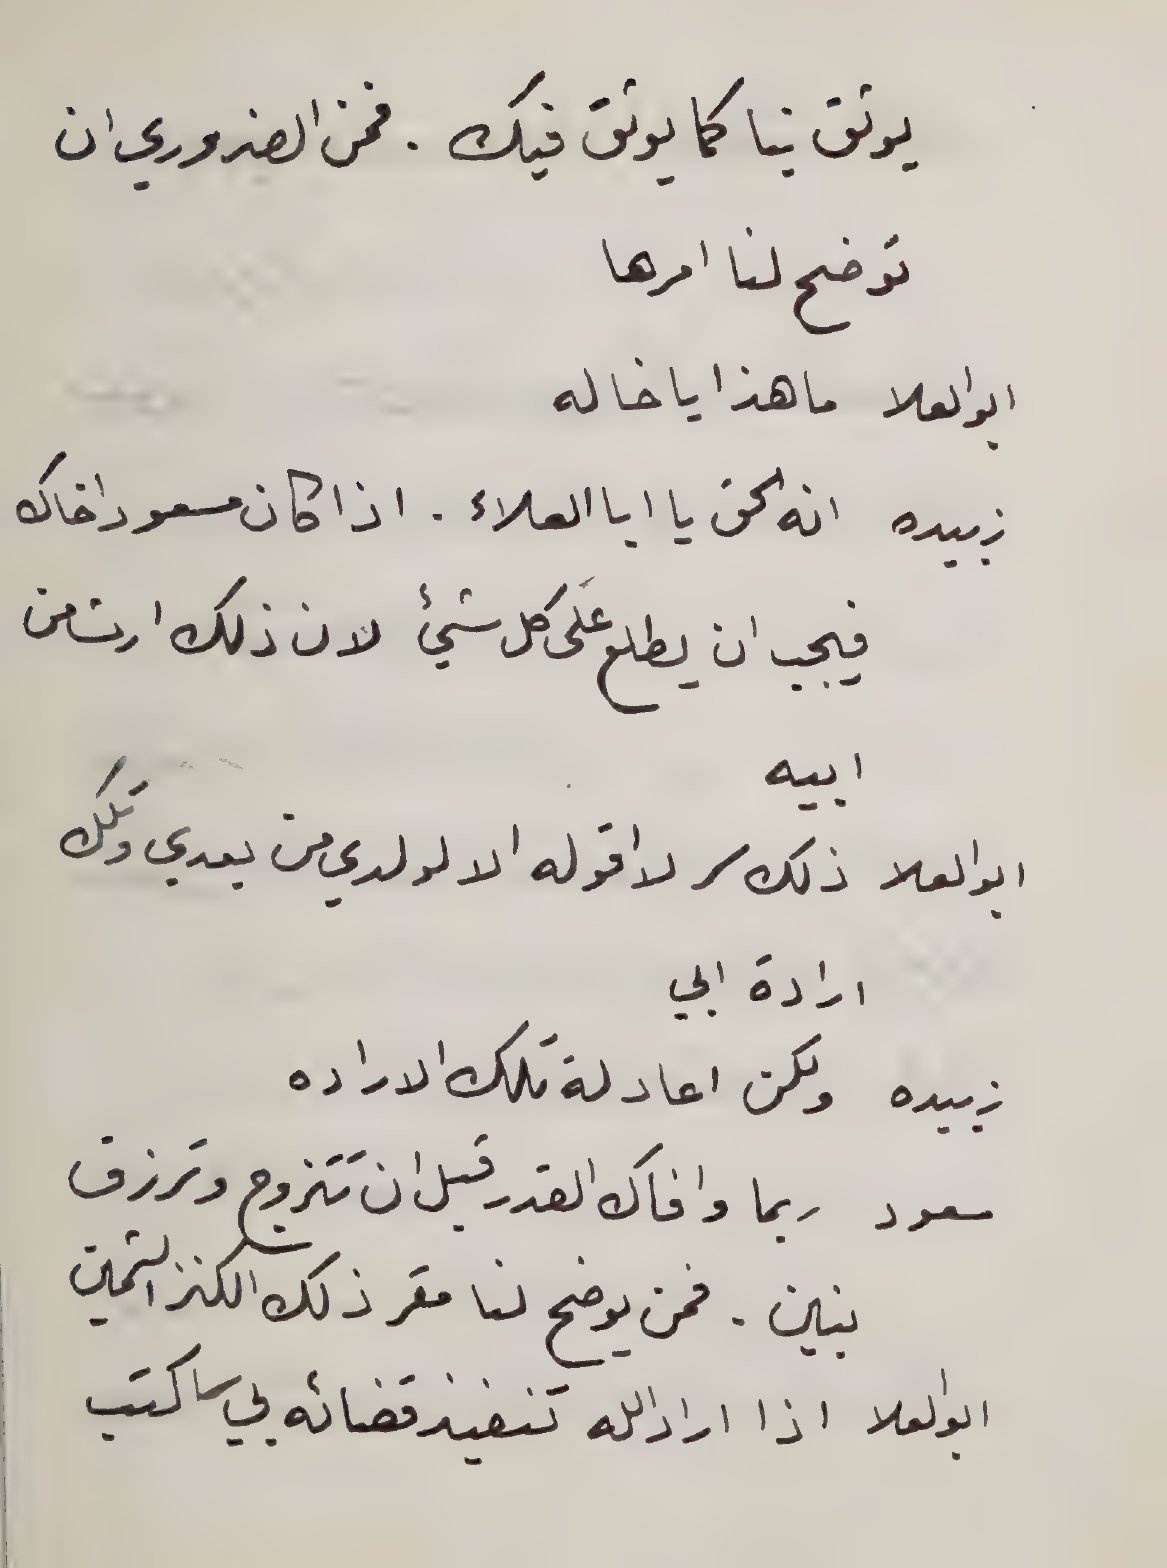 يوثق بنا كما يوثق فيك . فمن الضروري ان
توضح لنا امرها
ابو العلا ما هذا يا خاله
زبيده انه الحق يا ابا العلاء . اذا كان مسعود اخاك
فيجب ان يطلع على كل شيئ لان ذلك ارث من
ابيه
ابو العلا ذلك سر لا اقوله الا لولدي من بعدي وتلك
ارادة ابي
زبيده ولكن اعادلة تلك الاراده
مسعود ربما وافاك القدر قبل ان تتزوج وترزق
بنين . فمن يوضح لنا مقر ذلك الكنز الثمين
ابو العلا اذا اراد الله تنفيذ قضائه بي ساكتب